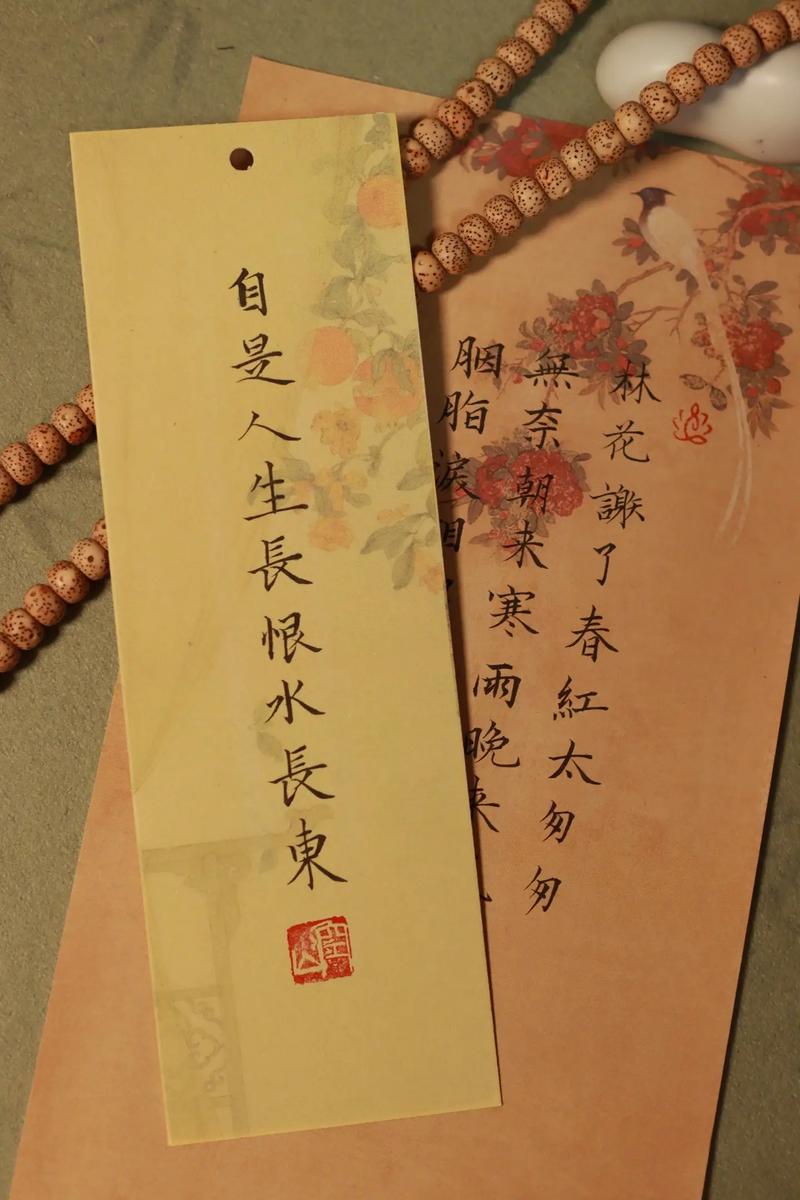 林花謝了春紅太匆匆
無奈朝来寒雨晚来
胭脂淚相
自是人生長恨水長東